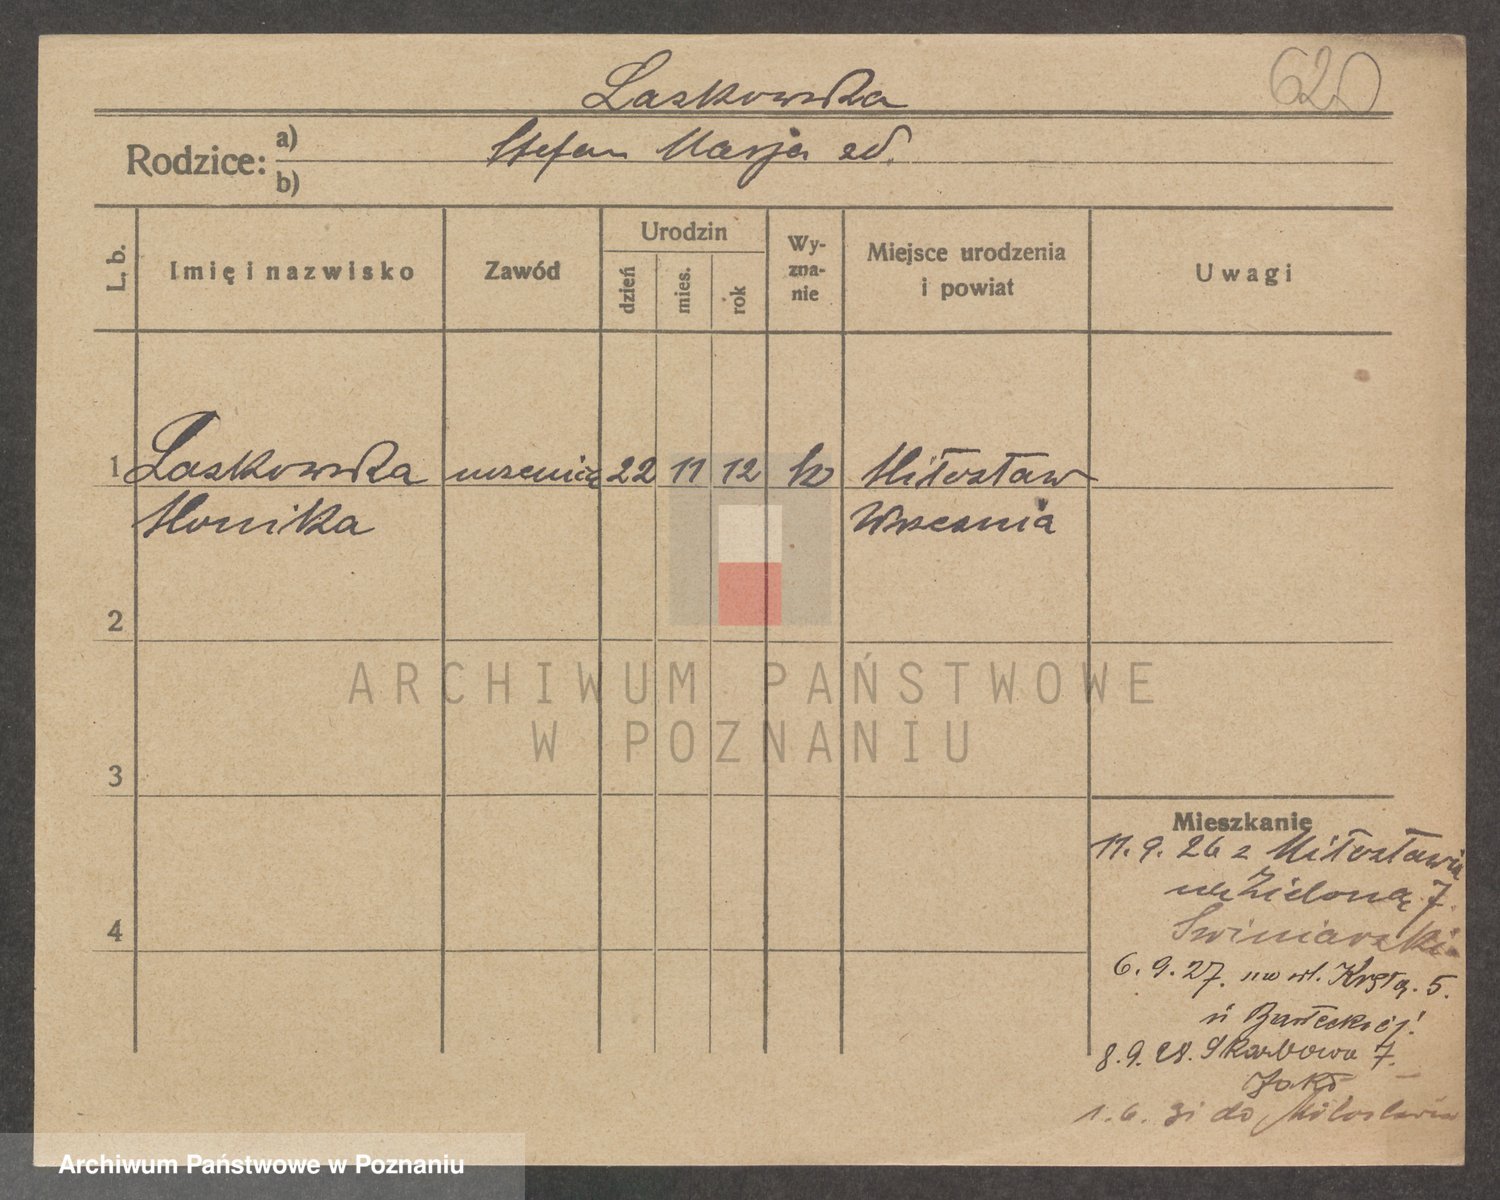 620
Laskowska
Rodzice: a) b)
Stefan Marja zd.
L. b.
Imię i nazwisko
Zawód
Urodzin
dzień
mies.
rok
Wy-
zna-
nie
Miejsce urodzenia
i powiat
Uwagi
1 Laskowska uczenica 22 11 12 kz Miłosław
Monika Wrzesnia
2
3
4
Mieszkanie
11.9.26 z Miłosławia
na Zieloną 7.
Swiniarski
6.9.27. na ul. Krętą. 5.
8.9.28. Skarbowa 7.
1.6. 31 do Miłosławia
ARCHIWUM PAŃSTWOWE
W POZNANIU
Archiwum Państwowe w Poznaniu